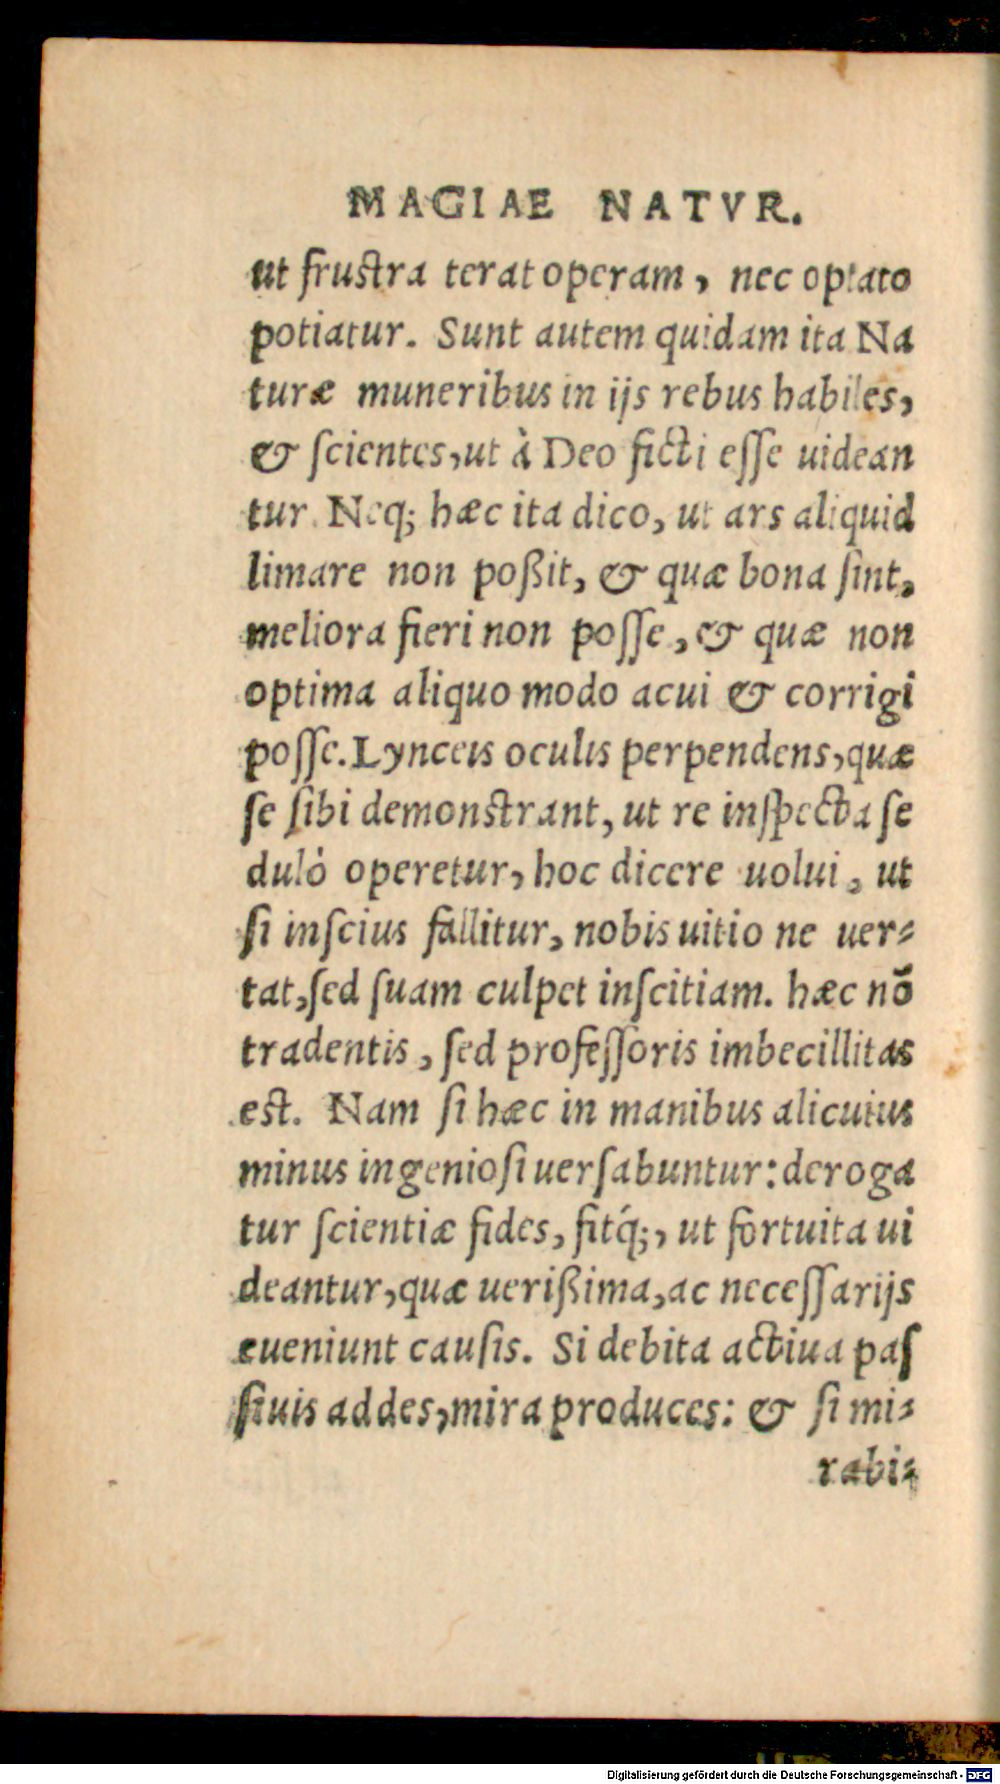 MAGIAE NATVR.
ut frustra terat operam, nec optato
potiatur. Sunt autem quidam ita Na
turæ muneribus in ijs rebus habiles,
& ſcientes, ut à Deo ficti eſſe uidean
tur. Neq; hæc ita dico, ut ars aliquid
limare non poßit, & quæ bona ſint,
meliora fieri non poſſe, & quæ non
optima aliquo modo acui & corrigi
poſſe. Lynceis oculis perpendens, quæ
ſe ſibi demonstrant, ut re inſpecta ſe
dulò operetur, hoc dicere uolui, ut
ſi inſcius fallitur, nobis uitio ne uer⸗
tat, ſed ſuam culpet inſcitiam. hæc nõ
tradentis, ſed profeſſoris imbecillitas
est. Nam ſi hæc in manibus alicuius
minus ingenioſi uerſabuntur: deroga
tur ſcientiæ fides, fitq́;, ut fortuita ui
deantur, quæ uerißima, ac neceſſarijs
eueniunt cauſis. Si debita actiua paſ
ſiuis addes, mira produces: & ſi mi⸗
rabi⸗
Digitalisierung gefördert durch die Deutsche Forschungsgemeinschaft - DFG